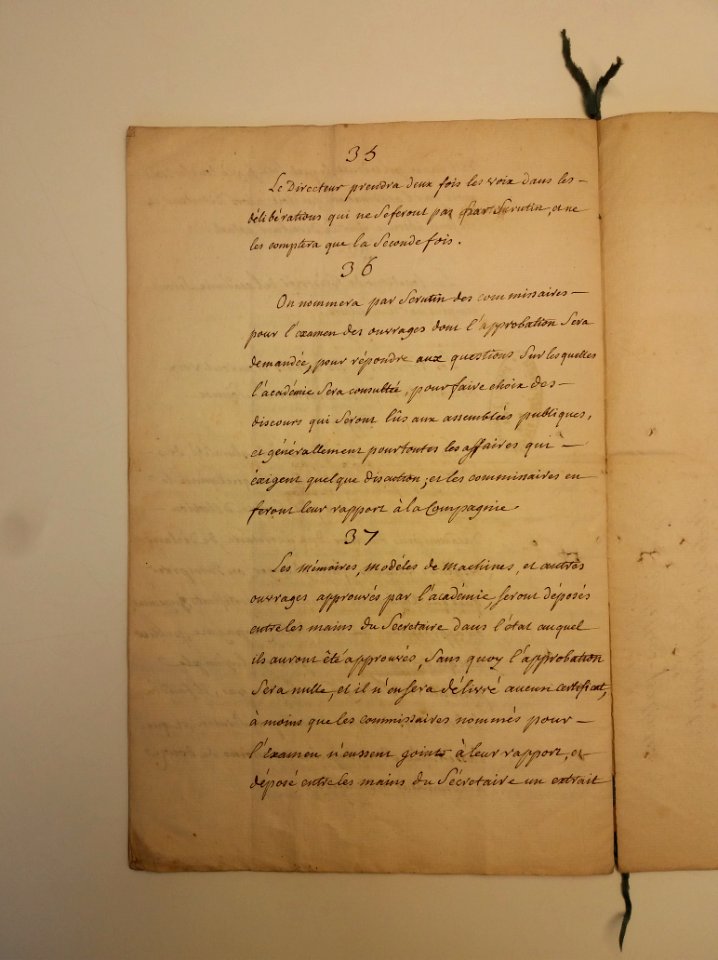 35
Le Directeur prendra deux fois les voix dans les
délibérations qui ne se feront pas par Scrutin, et ne
les comptera que la Seconde fois.
36
On nommera par Scrutin des commissaires
pour l'examen des ouvrages dont l'approbation Sera
demandée, pour répondre aux questions Sur lesquelles
l'académie Sera consultée, pour faire choix des
discours qui Seront lûs aux assemblées publiques,
et générallement pour toutes les affaires qui
éxigent quelque discution; et les commissaires en
feront leur rapport à la Compagnie.
37
Les mémoires, modéles de machines, et autres
ouvrages approuvés par l'académie, seront déposés
entre les mains du Secretaire dans l'état auquel
ils auront été approuvés, Sans quoy l'approbation
Sera nulle, et il n'en Sera délivré aucun certificat,
à moins que les commissaires nommés pour
l'Examen n'eussent joint à leur rapport, et
déposé entre les mains du Sécretaire un extrait